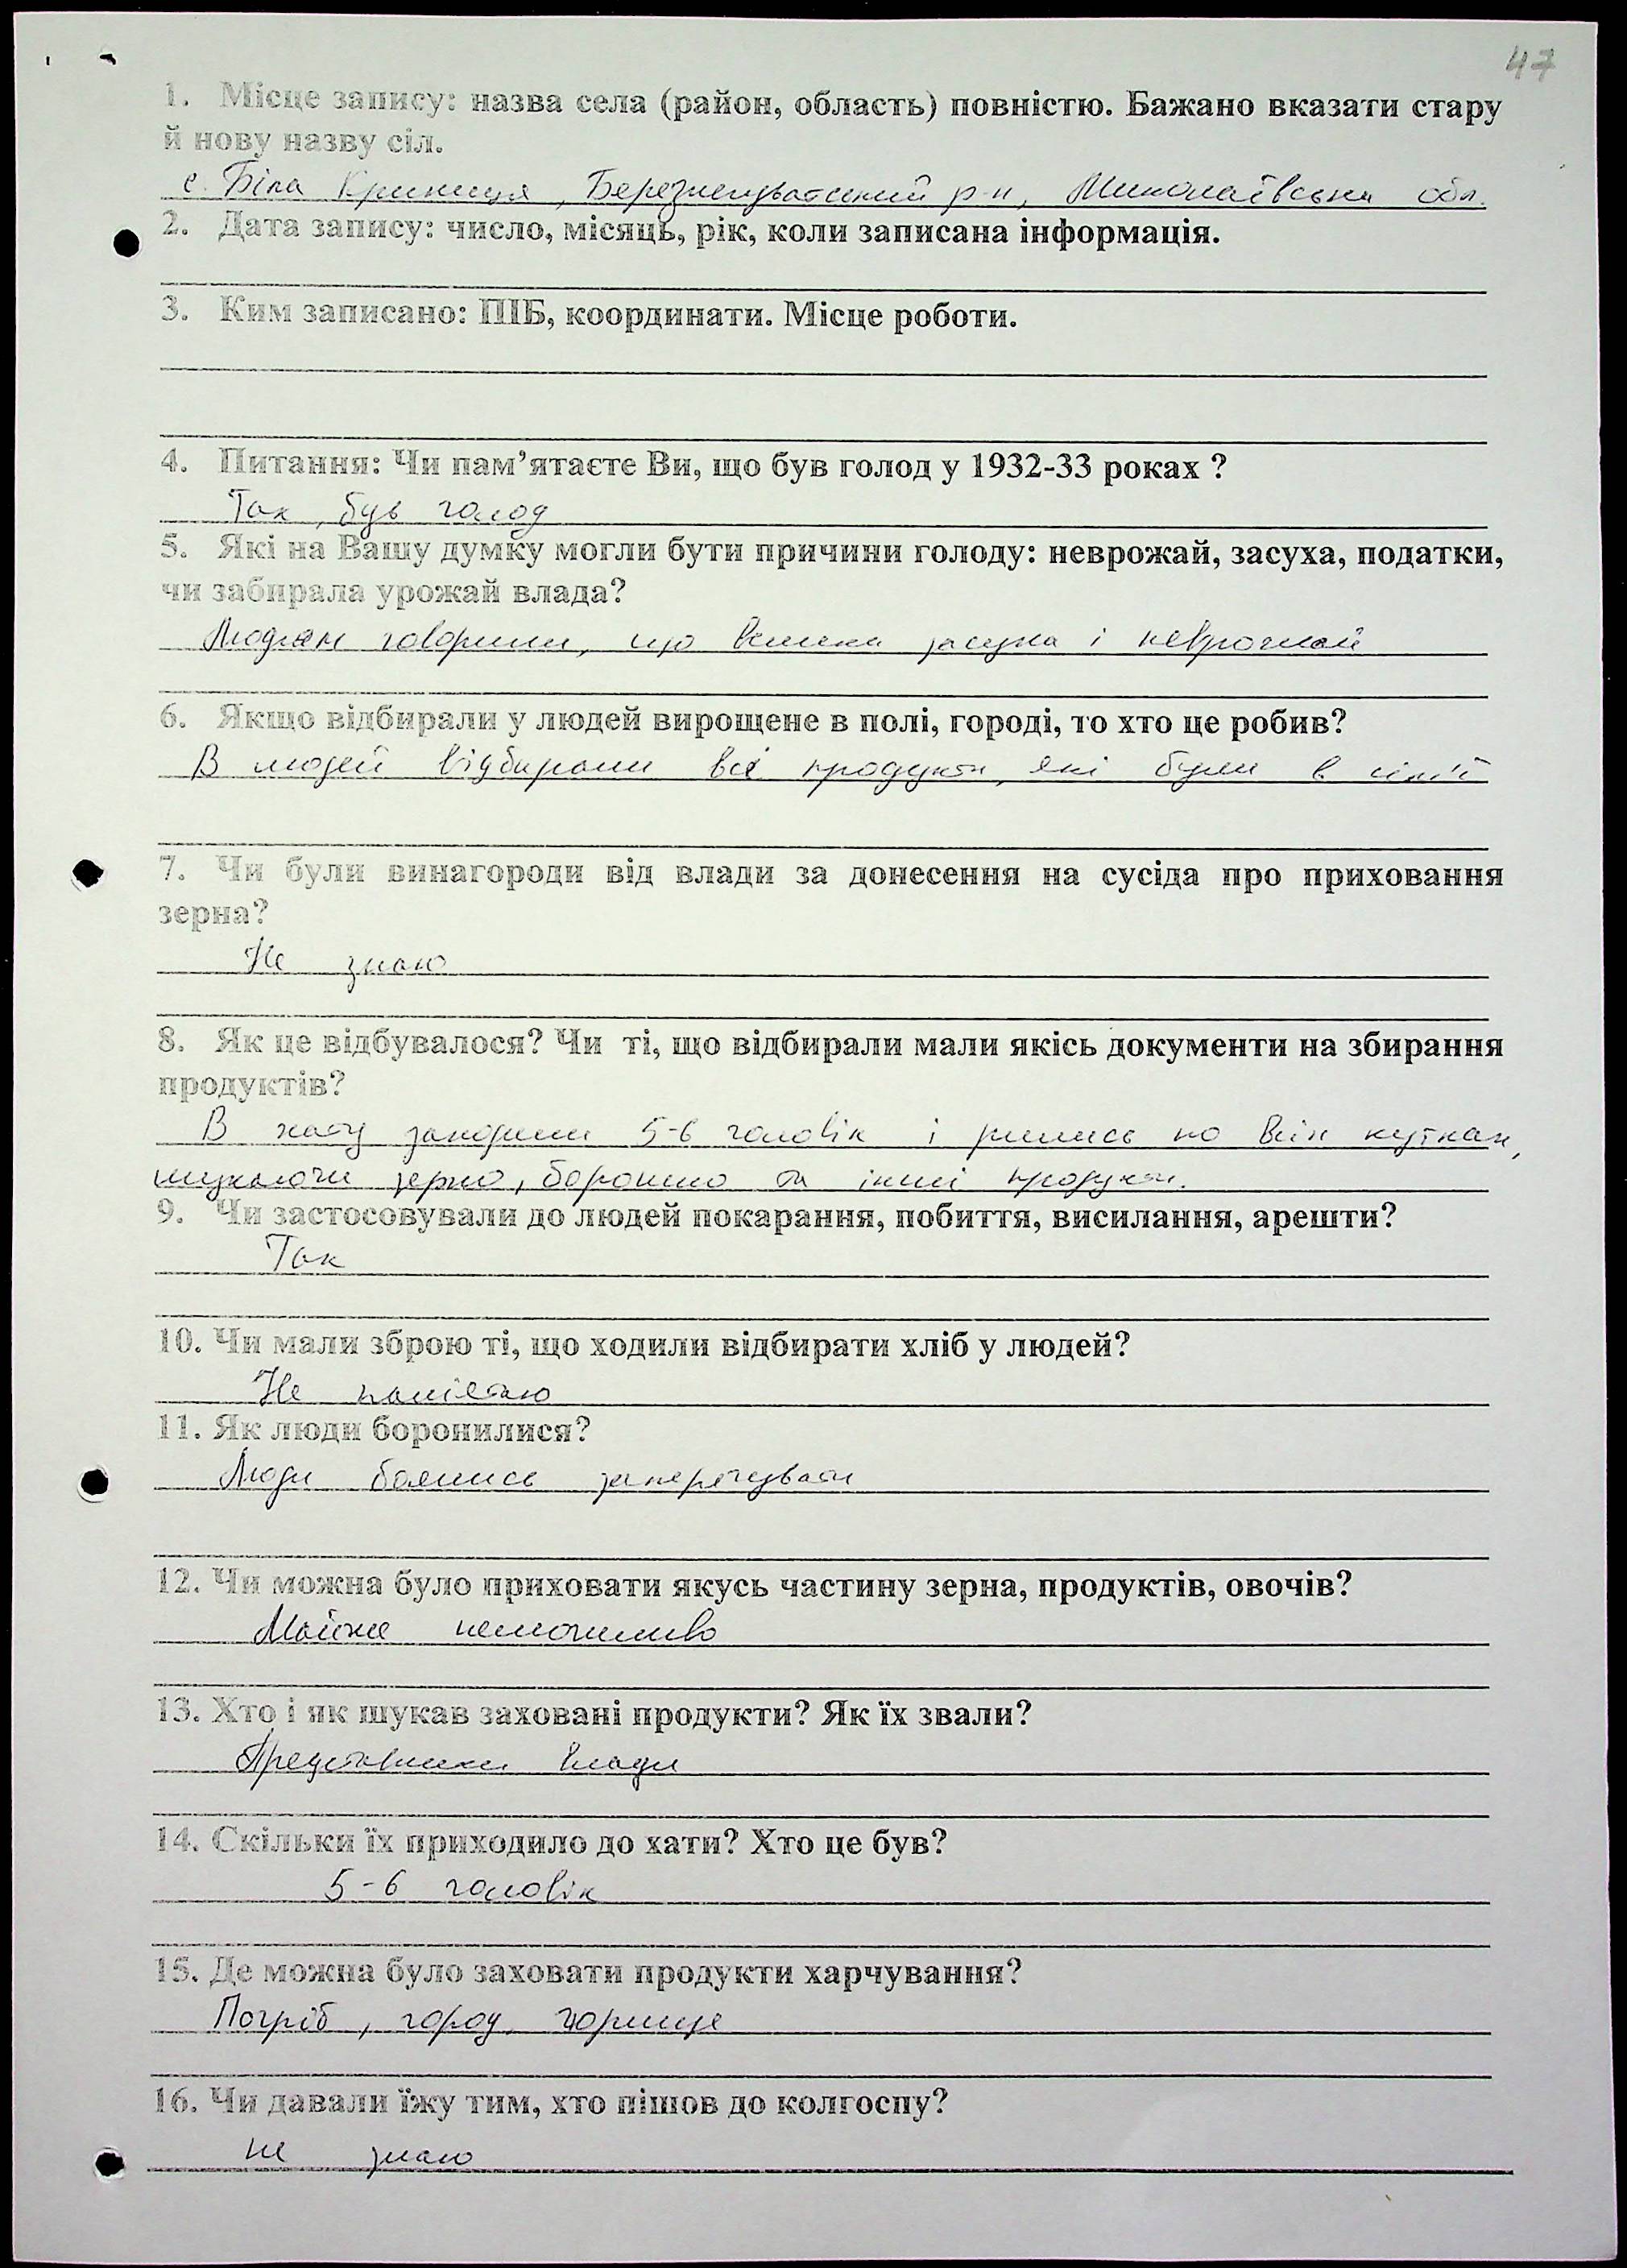 47
1. Місце запису: назва села (район, область) повністю. Бажано вказати стару
й нову назву сіл.
с. Біла Криниця, Березнегуватський р-н, Миколаївська обл.
2. Дата запису: число, місяць, рік, коли записана інформація.
3. Ким записано: ПІБ, координати. Місце роботи.
4. Питання: Чи пам’ятаєте Ви, що був голод у 1932-33 роках ?
Так, був голод
5. Які на Вашу думку могли бути причини голоду: неврожай, засуха, податки,
чи забирала урожай влада?
Людям говорили, що велика засуха і неврожай
6. Якщо відбирали у людей вирощене в полі, городі, то хто це робив?
В людей відбирали всі продукти, які були в сім'ї
7. Чи були винагороди від влади за донесення на сусіда про приховання
зерна?
Не знаю
8. Як це відбувалося? Чи ті, що відбирали мали якісь документи на збирання
продуктів?
В хату заходили 5-6 чоловік і рились по всіх кутках,
шукаючи зерно, борошно та інші продукти.
9. Чи застосовували до людей покарання, побиття, висилання, арешти?
Так
10. Чи мали зброю ті, що ходили відбирати хліб у людей?
Не
11. Як люди боронилися?
Люди боялись заперечувати
12. Чи можна було приховати якусь частину зерна, продуктів, овочів?
Майже неможливо
13. Хто і як шукав заховані продукти? Як їх звали?
Представники влади
14. Скільки їх приходило до хати? Хто це був?
5-6 чоловік
15. Де можна було заховати продукти харчування?
Погріб, город, горище
16. Чи давали їжу тим, хто пішов до колгоспу?
не знаю